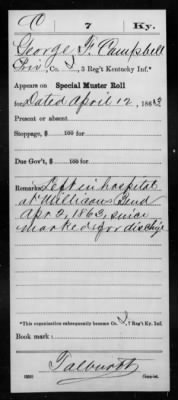 C | 7 | Ky.
George F. Campbell
Priv, Co. I, 3 Reg't Kentucky Inf.*
Appears on Special Muster Roll
for Dated April 12, 1863
Present or absent
Stoppage, $ 100 for
Due Gov't, $ 100 for
Remarks: Left in hospital
at Millicans Bend
Apr 2, 1863, since
marked for discharge
*This organization subsequently became Co. I, 7 Reg't Ky. Inf.
Book mark:
Talbutt
Copyist.